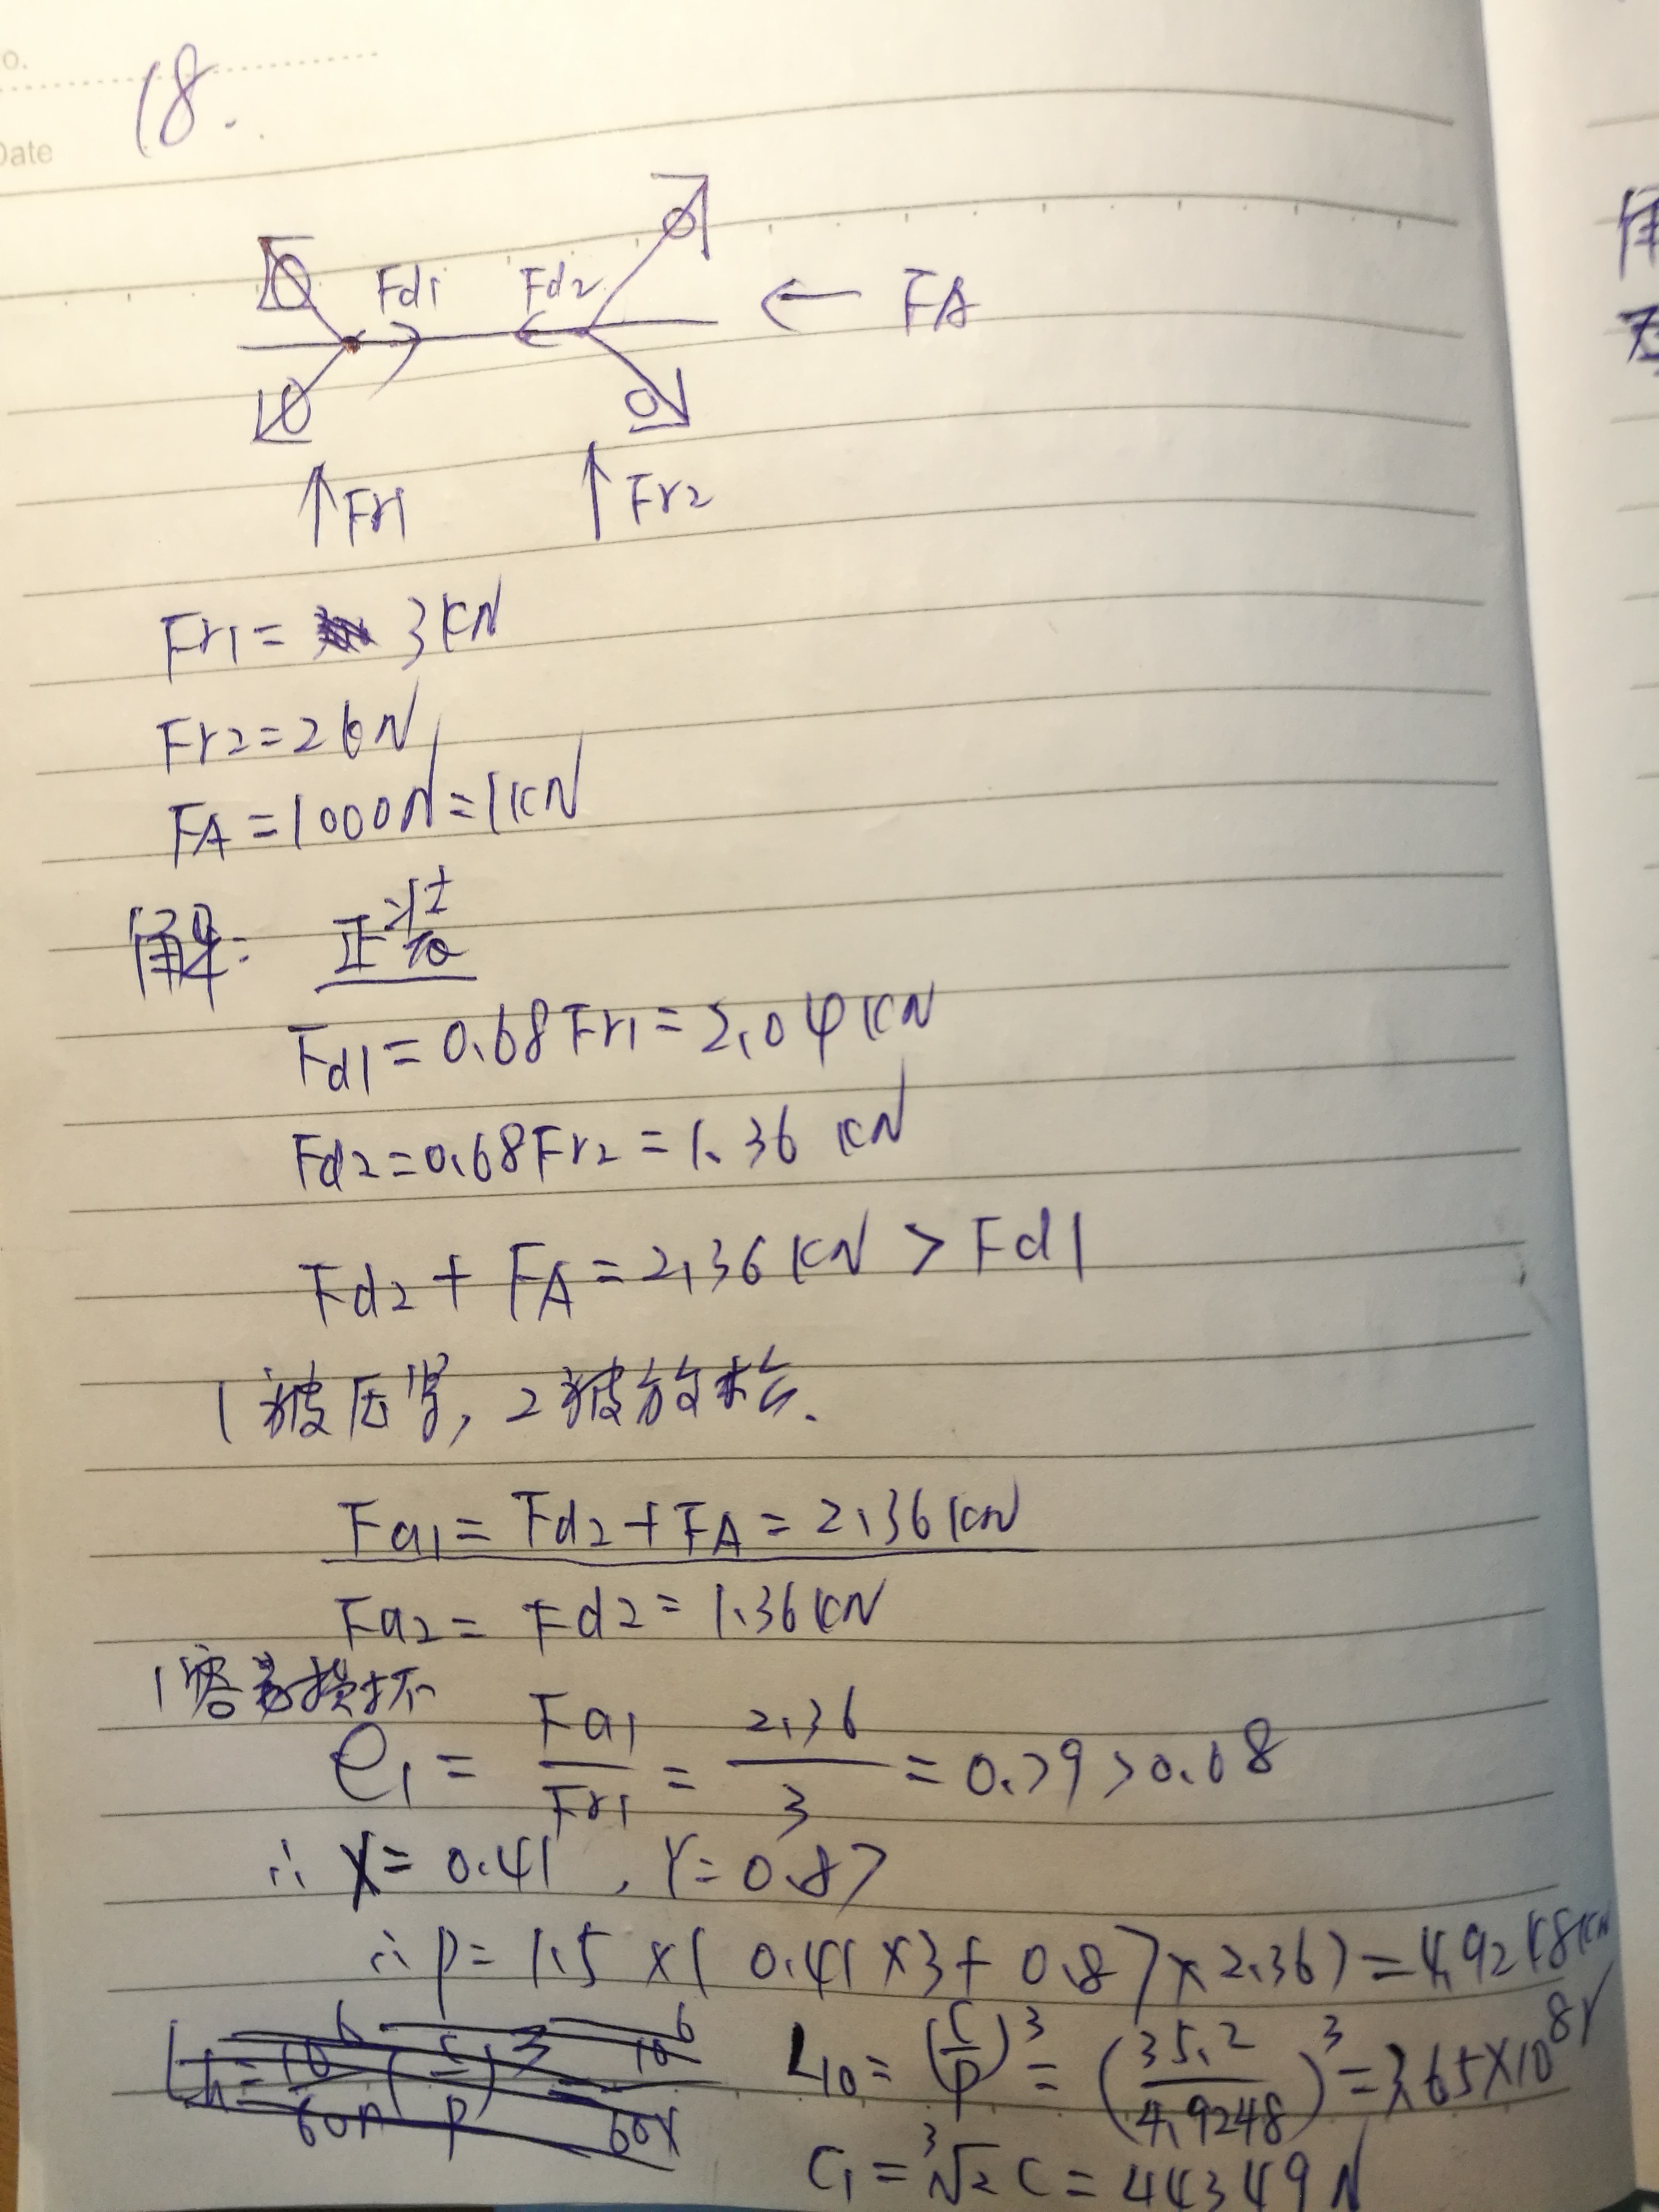 o.
Date
18.
Fd1 Fd2 ← FA
Fr1 Fr2
Fr1 = 3KN
Fr2=2KN
FA=1000N=1KN
解: 正装
Fd1=0.68Fr1=2.04KN
Fd2=0.68Fr2=1.36 KN
Fd2+FA=2.36KN>Fd1
1被压紧,2被放松.
Fa1=Fd2+FA=2.36KN
Fa2=Fd2=1.36KN
1容易损坏
e1 = Fa1/Fr1 = 2.36/3 = 0.79>0.68
∴ X=0.41, Y=0.87
∴ P=1.5×(0.41×3+0.87×2.36)=4.9248KN
L10=(C/P)³=(35.2/4.9248)³=3.65×10⁸r
C1=³√2C=44349N